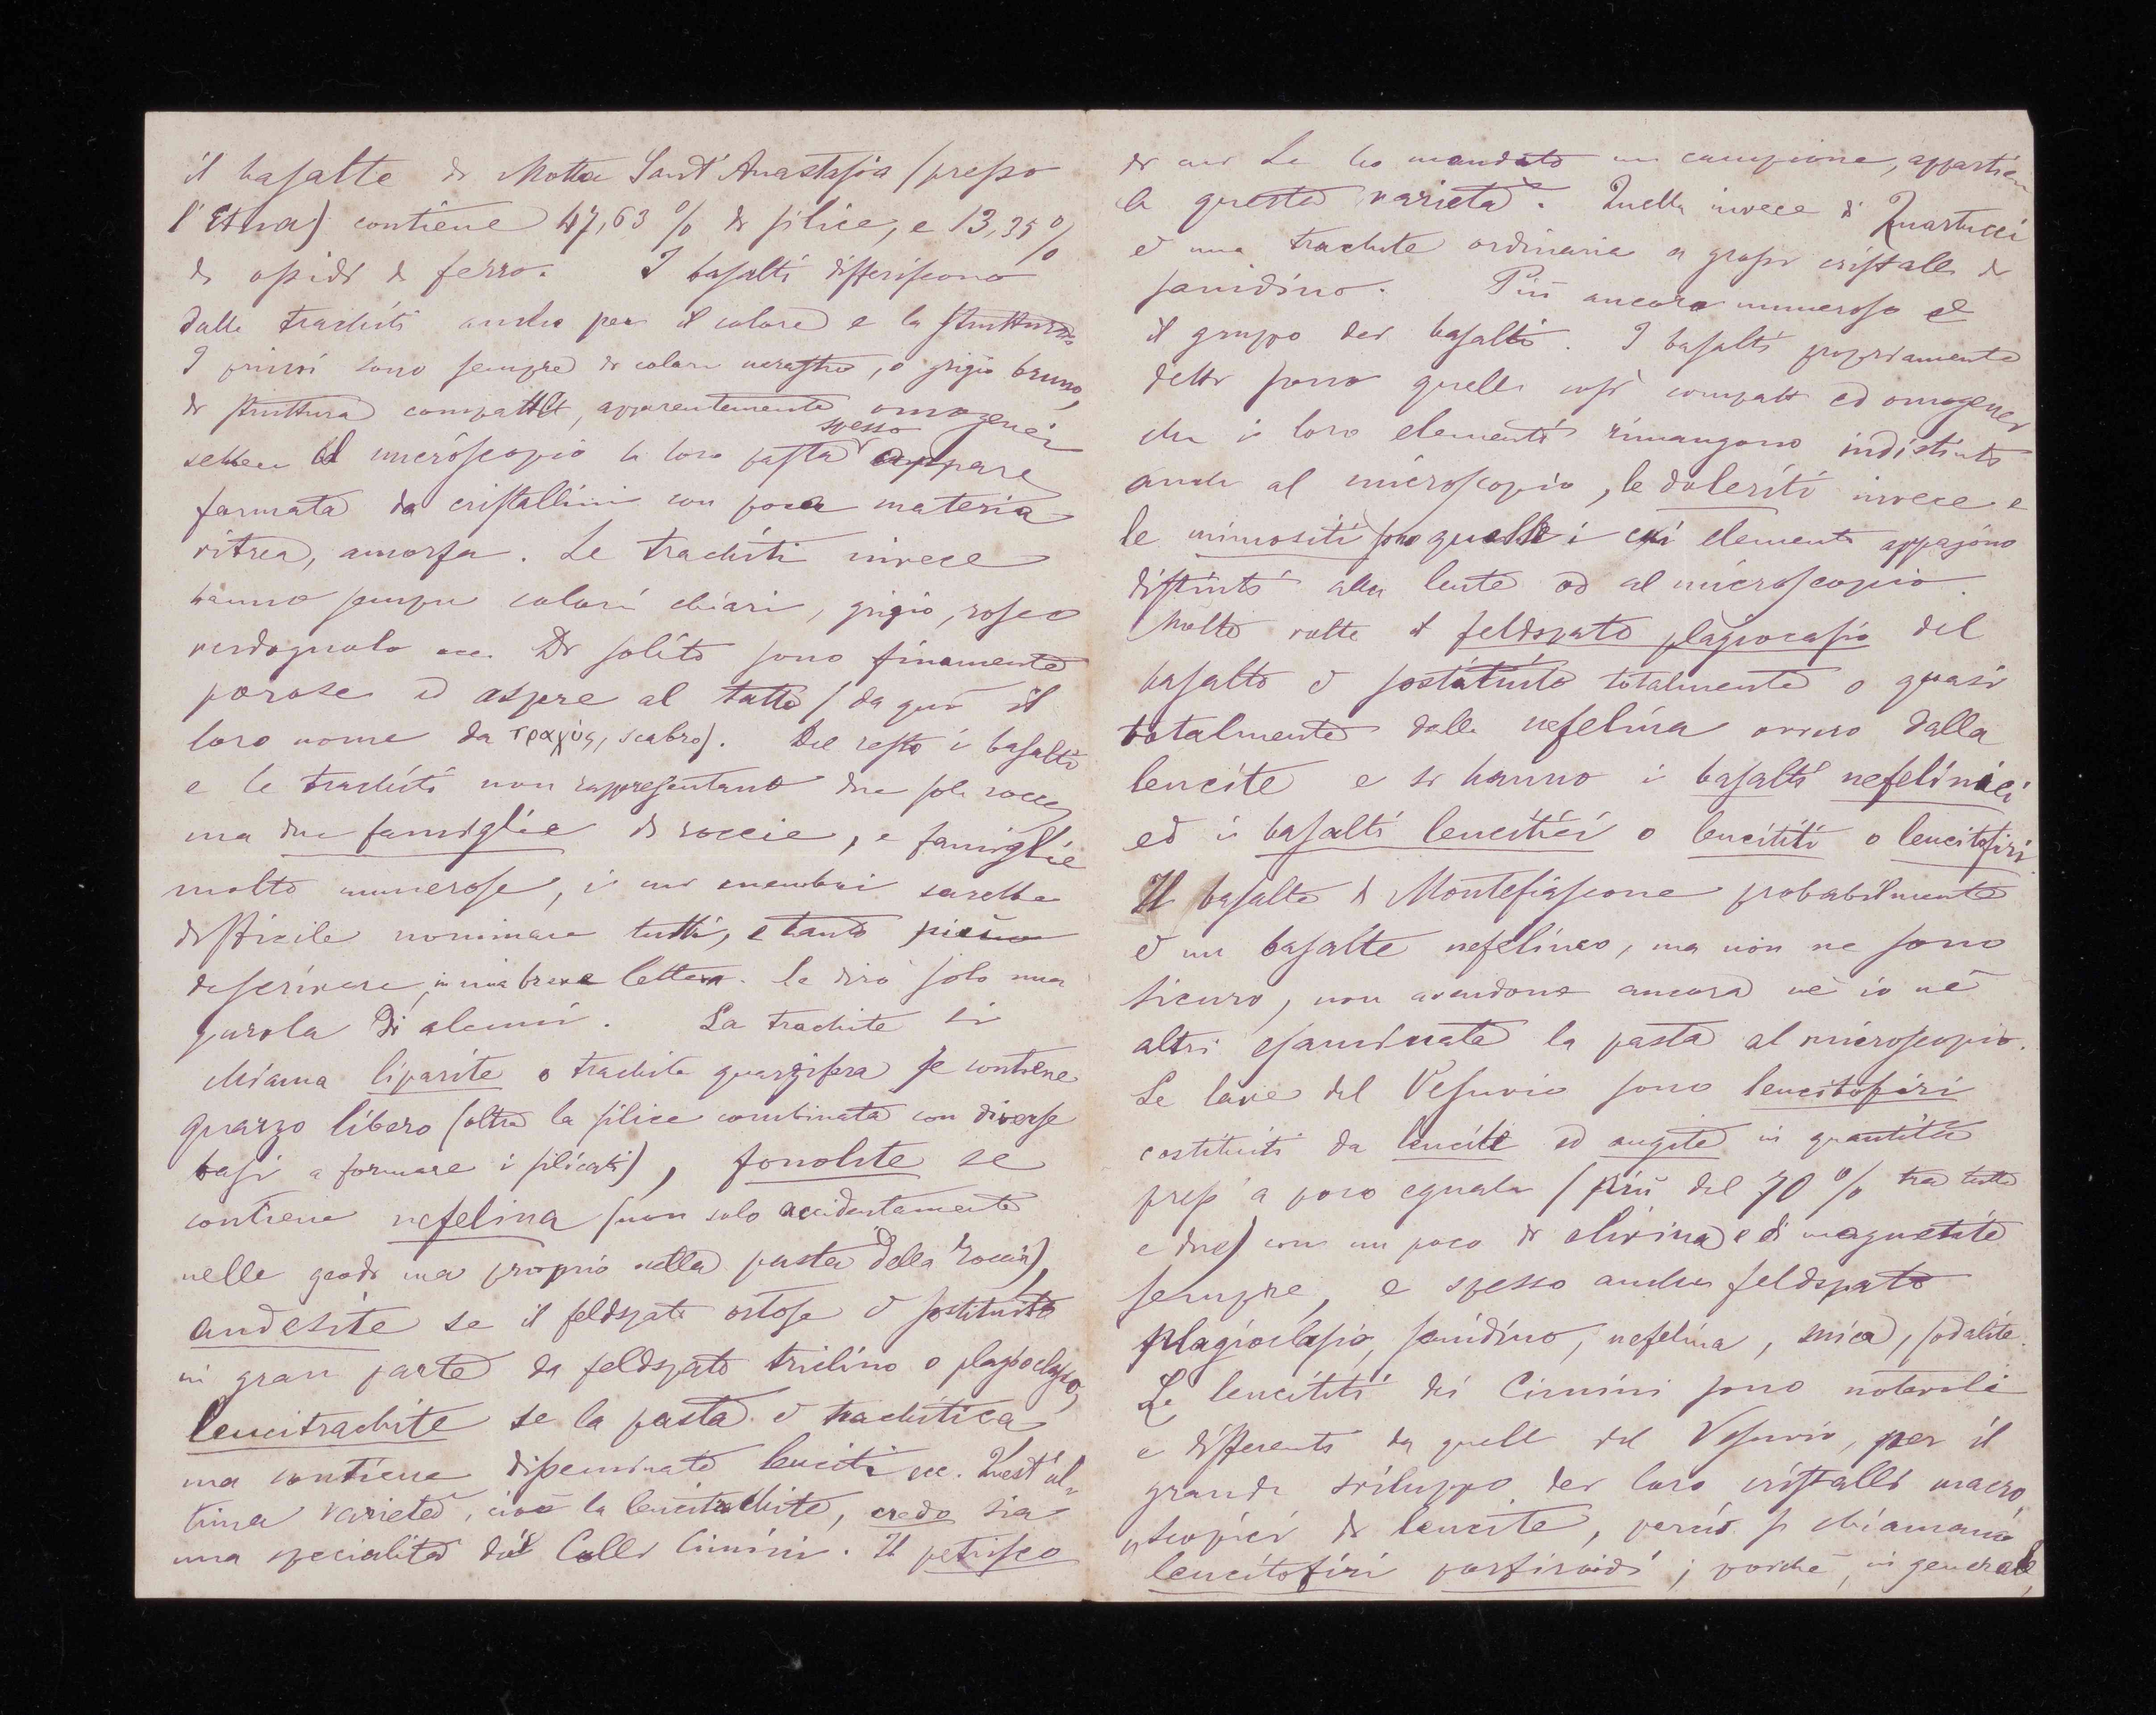 il basalte di Motta Sant'Anastasia (presso
l'Etna) contiene 47,63 % di silice, e 13,35 %
di ossidi di ferro. I basalti differiscono
dalle trachiti anche per il colore e la struttura.
I primi sono sempre di colore nerastro, o grigio bruno,
di struttura compatta, apparentemente omogenei
sebben al microscopio la loro pasta spesso appare
formata da cristallini con poca materia
vitrea, amorfa. Le trachiti invece
hanno sempre colori chiari, grigio, roseo
verdognolo ecc. Di solito sono finamente
porose ed aspre al tatto (da qui il
loro nome da τραχύς, scabro). Del resto i basalti
e le trachiti non rappresentano due sole rocce
ma due famiglie di roccie, e famiglie
molto numerose, i cui membri sarebbe
difficile nominare tutti, e tanto più
descrivere, in una breve lettera. Le dirò solo una
parola di alcuni. La trachite si
chiama liparite o trachite quarzifera se contiene
quarzo libero (oltre la silice combinata con diverse
basi a formare i silicati), fonolite se
contiene nefelina (non solo accidentamente
nelle geodi ma proprio nella pasta della roccia),
andesite se il feldspato ortose è sostituito
in gran parte da feldspato triclino o plagioclasio,
leucitrachite se la pasta è trachitica
ma contiene disseminate leuciti ecc. Quest'ul=
tima varietà, cioè la leucitrachite, credo sia
una specialità dei Colli Cimini. Il petrisco
di cui Le ho mandato un campione, appartien
a questa varietà. Quella invece di Quartucci
è una trachite ordinaria a grossi cristalli di
sanidino. Più ancora numeroso è
il gruppo dei basalti. I basalti propriamente
detti sono quelli così compatti ed omogenei
che i loro elementi rimangono indistinti
anche al microscopio, le doleriti invece e
le mimositi sono quelle i cui elementi appajono
distinti alla lente od al microscopio.
Molte volte il feldspato plagiocasio del
basalto è sostituito totalmente o quasi
totalmente dalla nefelina ovvero dalla
leucite e si hanno i basalti nefelinici
ed i basalti leucitici o leucititi o leucitofiri
Il basalte di Montefiascone probabilmente
è un basalte nefelinico, ma non ne sono
sicuro, non avendone ancora nè io nè
altri esaminata la pasta al microscopio.
Le lave del Vesuvio sono leucitofiri
costituiti da leucite ed augite in quantità
press'a poco eguale (più del 70 % tra tutte
e due) con un poco di olivina e di magnetite
sempre, e spesso anche feldspato
plagioclasio, sanidino, nefelina, mica, sodalite.
Le leucititi dei Cimini sono notevoli
e differenti da quelle del Vesuvio, per il
grande sviluppo dei loro cristalli macro
scopici di leucite, perciò si chiamano
leucitofiri porfiroidi; poichè, in generale,